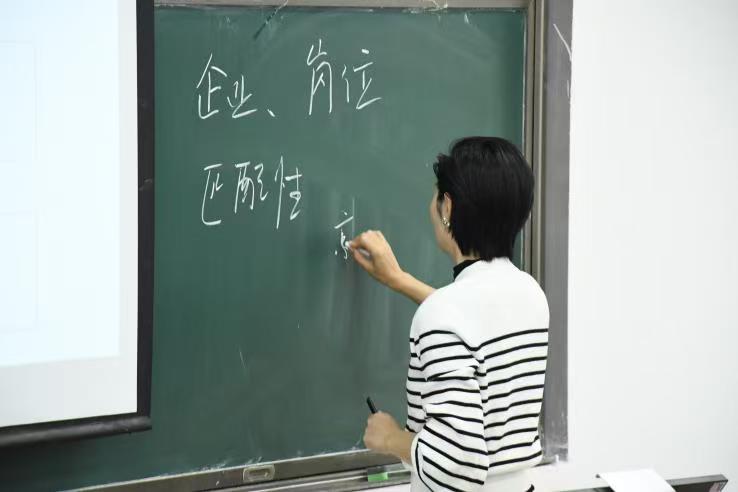 企业、岗位
匹配性